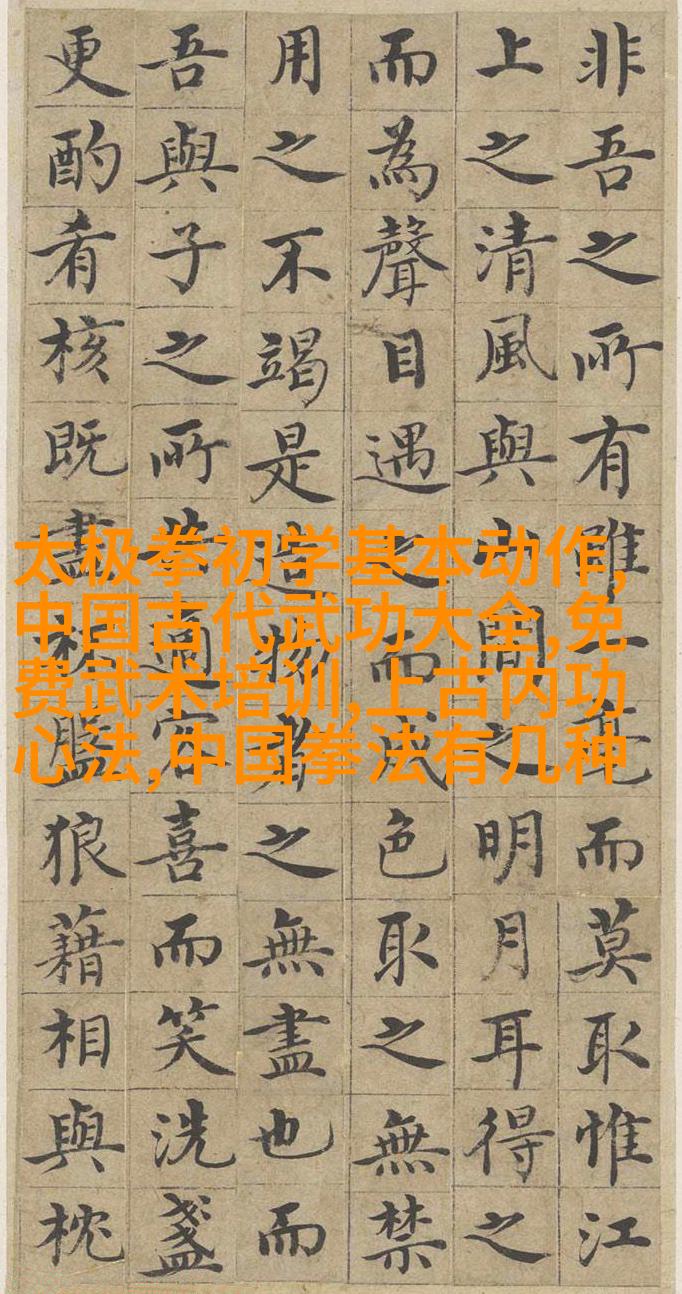 非吾之所有雖一毫而莫取惟江
上之清風與山間之明月耳得之
而為聲目遇之而成色取之無禁
用之不竭是造物者之無盡也而
吾與子之所共適客喜而笑洗盞
更酌肴核既盡杯盤狼藉相與枕
太极拳初学基本动作,
中国古代武功大全,免
费武术培训,上古内功
心法,中国拳法有几种